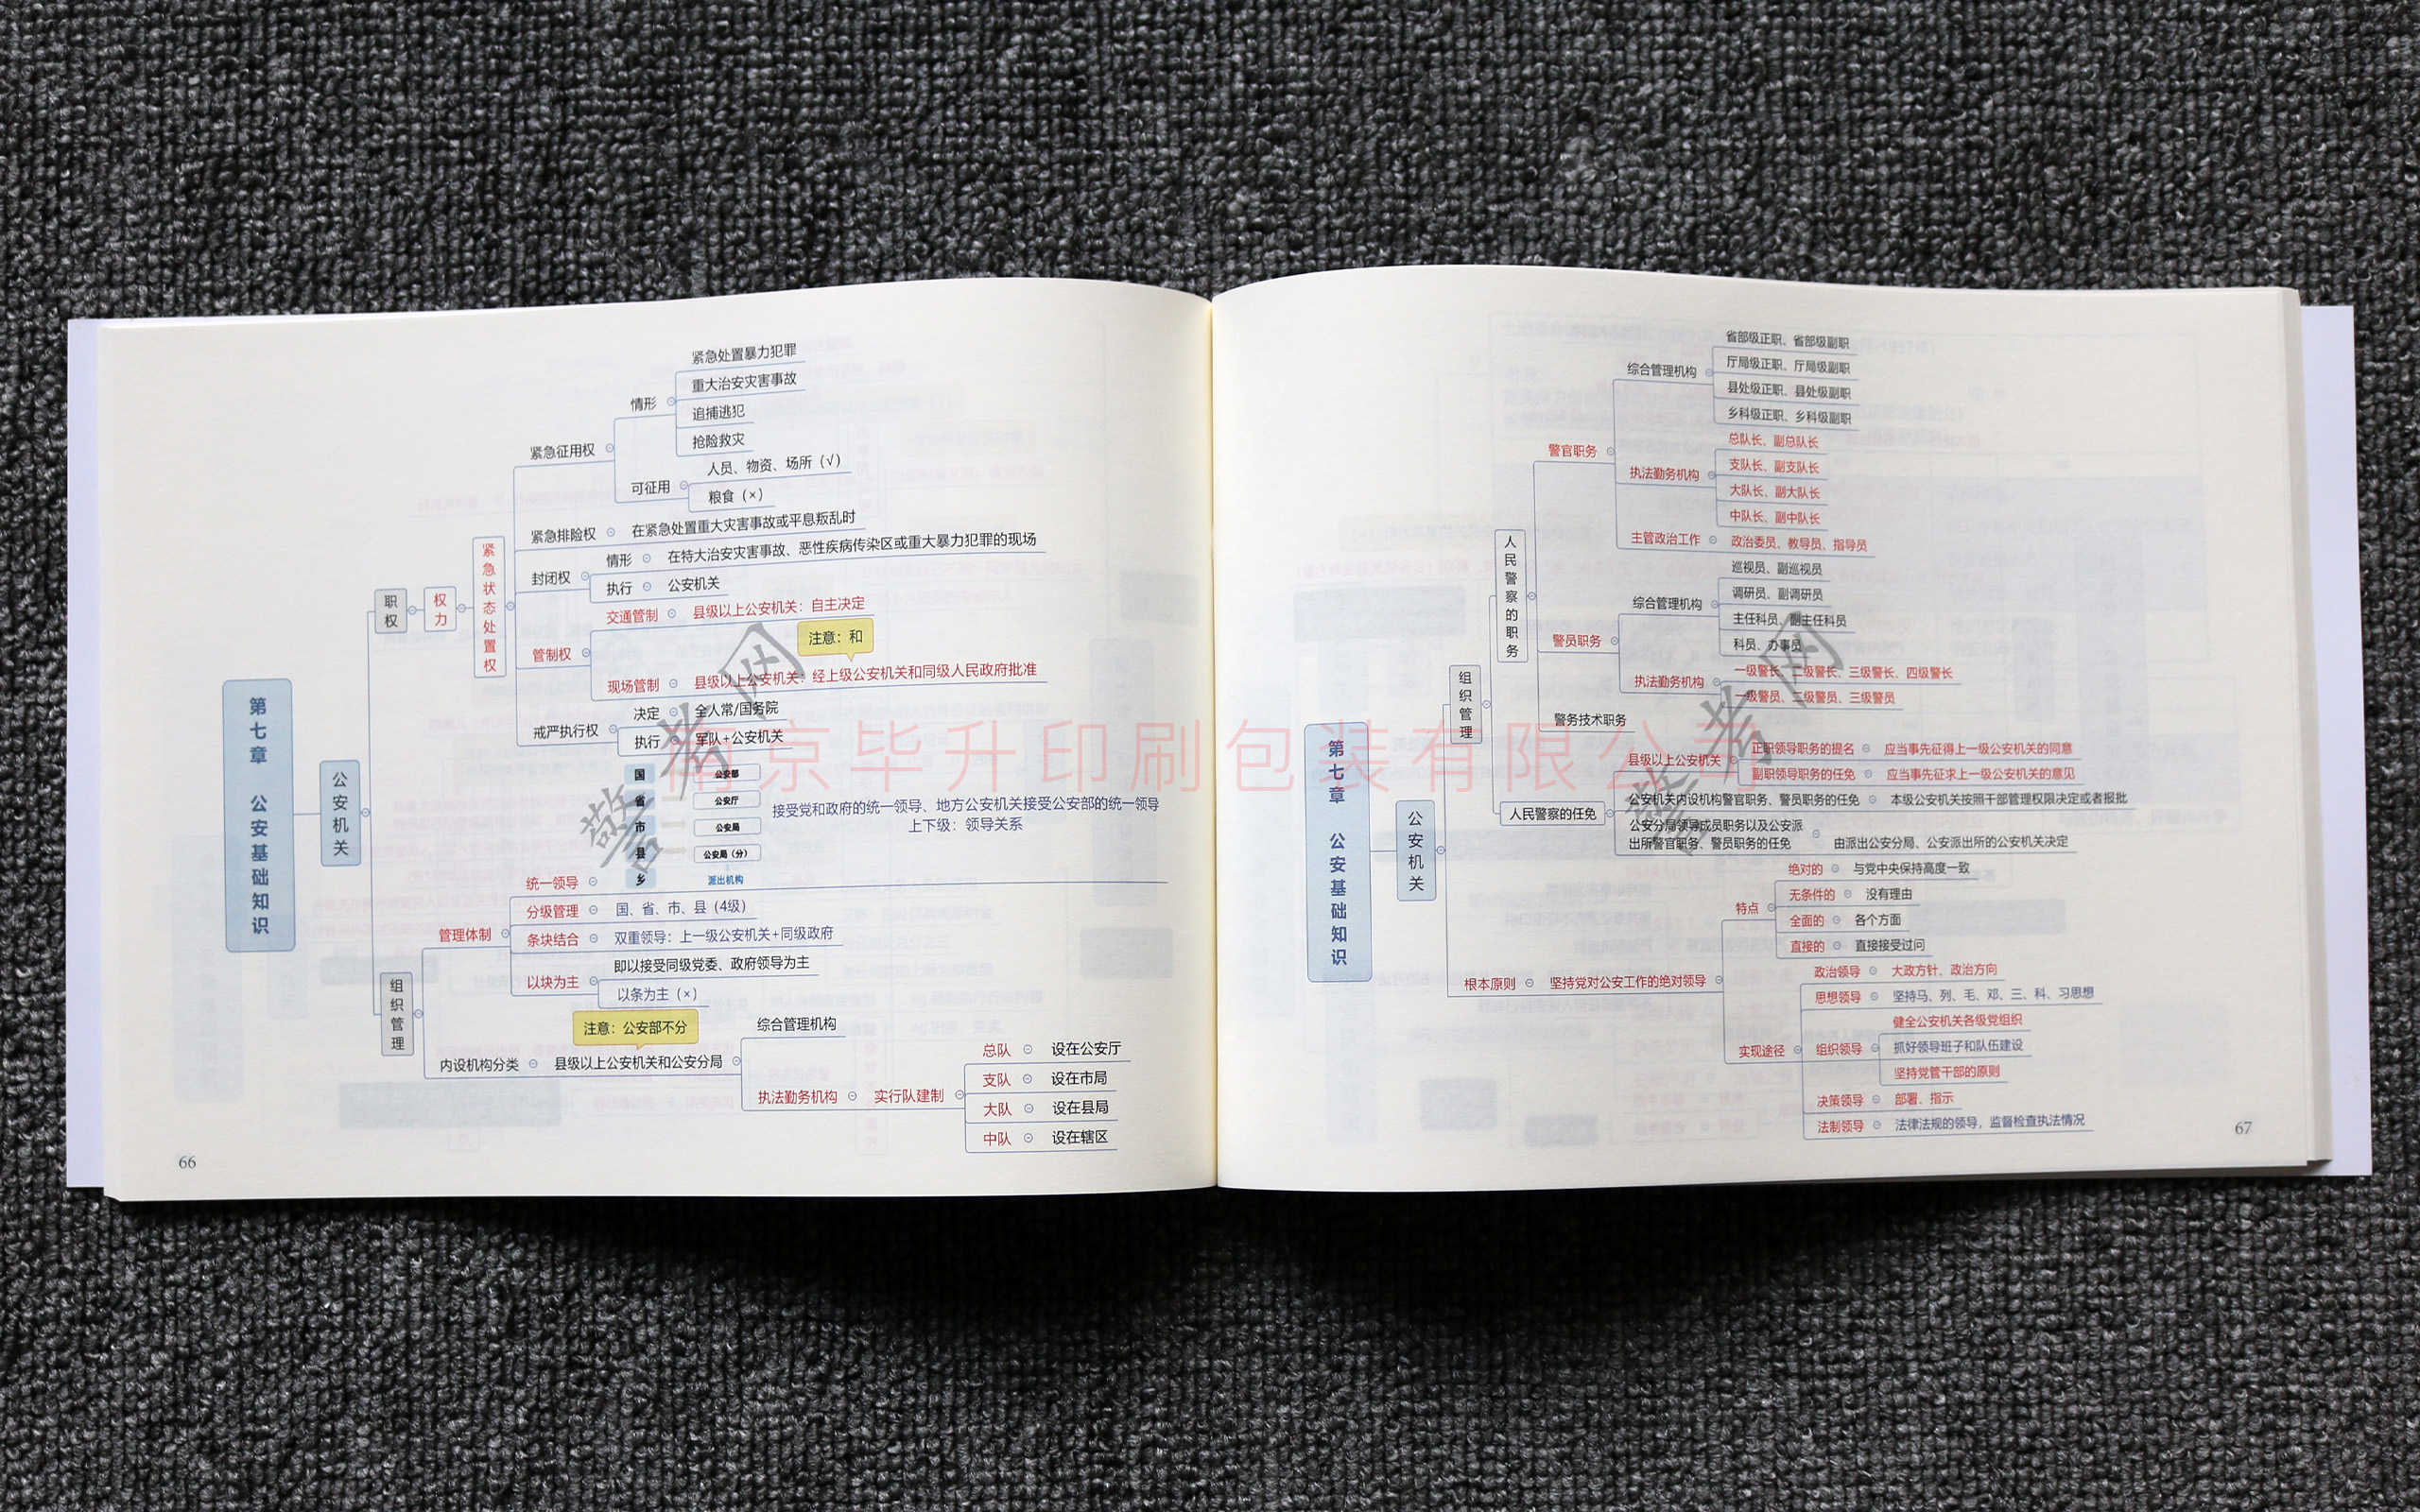 第七章 公安基础知识
公安机关
职权
权力
紧急状态处置权
紧急征用权
情形
紧急处置暴力犯罪
重大治安灾害事故
追捕逃犯
抢险救灾
可征用
人员、物资、场所（√）
粮食（×）
紧急排险权
在紧急处置重大灾害事故或平息叛乱时
封闭权
情形
在特大治安灾害事故、恶性疾病传染区或重大暴力犯罪的现场
执行
公安机关
管制权
交通管制
县级以上公安机关：自主决定
注意：和
现场管制
县级以上公安机关：经上级公安机关和同级人民政府批准
戒严执行权
决定
全人常/国务院
执行
军队+公安机关
组织管理
管理体制
统一领导
国
公安部
省
公安厅
市
公安局
县
公安局（分）
乡
派出机构
接受党和政府的统一领导、地方公安机关接受公安部的统一领导
上下级：领导关系
分级管理
国、省、市、县（4级）
条块结合
双重领导：上一级公安机关+同级政府
以块为主
即以接受同级党委、政府领导为主
以条为主（×）
注意：公安部不分
内设机构分类
县级以上公安机关和公安分局
综合管理机构
执法勤务机构
实行队建制
总队
设在公安厅
支队
设在市局
大队
设在县局
中队
设在辖区
66
警考网
南京毕升印刷包装有限公司
第七章 公安基础知识
公安机关
组织管理
人民警察的职务
警官职务
综合管理机构
省部级正职、省部级副职
厅局级正职、厅局级副职
县处级正职、县处级副职
乡科级正职、乡科级副职
执法勤务机构
总队长、副总队长
支队长、副支队长
大队长、副大队长
中队长、副中队长
主管政治工作
政治委员、教导员、指导员
警员职务
综合管理机构
巡视员、副巡视员
调研员、副调研员
主任科员、副主任科员
科员、办事员
执法勤务机构
一级警长、二级警长、三级警长、四级警长
一级警员、二级警员、三级警员
警务技术职务
人民警察的任免
县级以上公安机关
正职领导职务的提名
应当事先征得上一级公安机关的同意
副职领导职务的任免
应当事先征求上一级公安机关的意见
公安机关内设机构警官职务、警员职务的任免
本级公安机关按照干部管理权限决定或者报批
公安分局领导成员职务以及公安派
出所警官职务、警员职务的任免
由派出公安分局、公安派出所的公安机关决定
根本原则
坚持党对公安工作的绝对领导
特点
绝对的
与党中央保持高度一致
无条件的
没有理由
全面的
各个方面
直接的
直接接受过问
实现途径
政治领导
大政方针、政治方向
思想领导
坚持马、列、毛、邓、三、科、习思想
组织领导
健全公安机关各级党组织
抓好领导班子和队伍建设
坚持党管干部的原则
决策领导
部署、指示
法制领导
法律法规的领导，监督检查执法情况
67
警考网